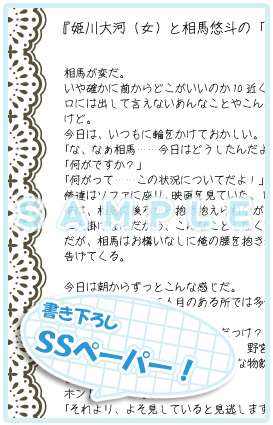 『姫川大河（女）と相馬悠斗の「
相馬が変だ。
いや確かに前からどこがいいのか10近く
ロには出して言えないあんなことやこん
けど。
今日は、いつもに輪をかけておかしい。
「な、なぁ相馬……今日はどうしたんだよ
「何がですか？」
「何がって……この状況についてだよ！」
俺達はソファに座り、映画を見ていた。
は、相馬
だが、相馬はお構いなしに俺の腰を抱き
告げてくる。
今日は朝からずっとこんな感じだ。
人目のある所では多
だっけ？
野宮
な物飲
ホン
「それより、よそ見していると見逃しますよ
SAMPLE
書き下ろし
SSペーパー！